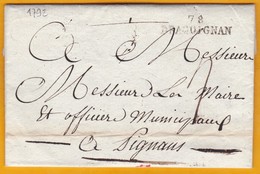 1792
78
DRAGUIGNAN
A Messieurs
Messieurs Les Maire
et officiers Municipaux
A Pignans